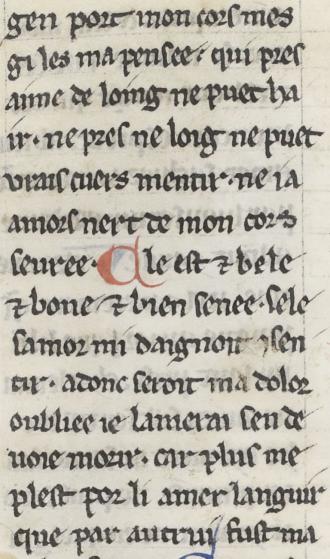 gen port mon cors mes
gi les ma pensee· qui pres
aime de loing ne puet ha
ir· ne pres ne loig ne puet
vrais cuers mentir· ne ia
amors nert de mon cors
seuree· Ele est ⁊ bele
⁊ bone ⁊ bien senee· sele
samor mi daignoit sen
tir· adonc seroit ma dolor
oubliee ie lamerai sen de
uoie morir· car plus me
plest por li amer languir
que par autrui fust ma